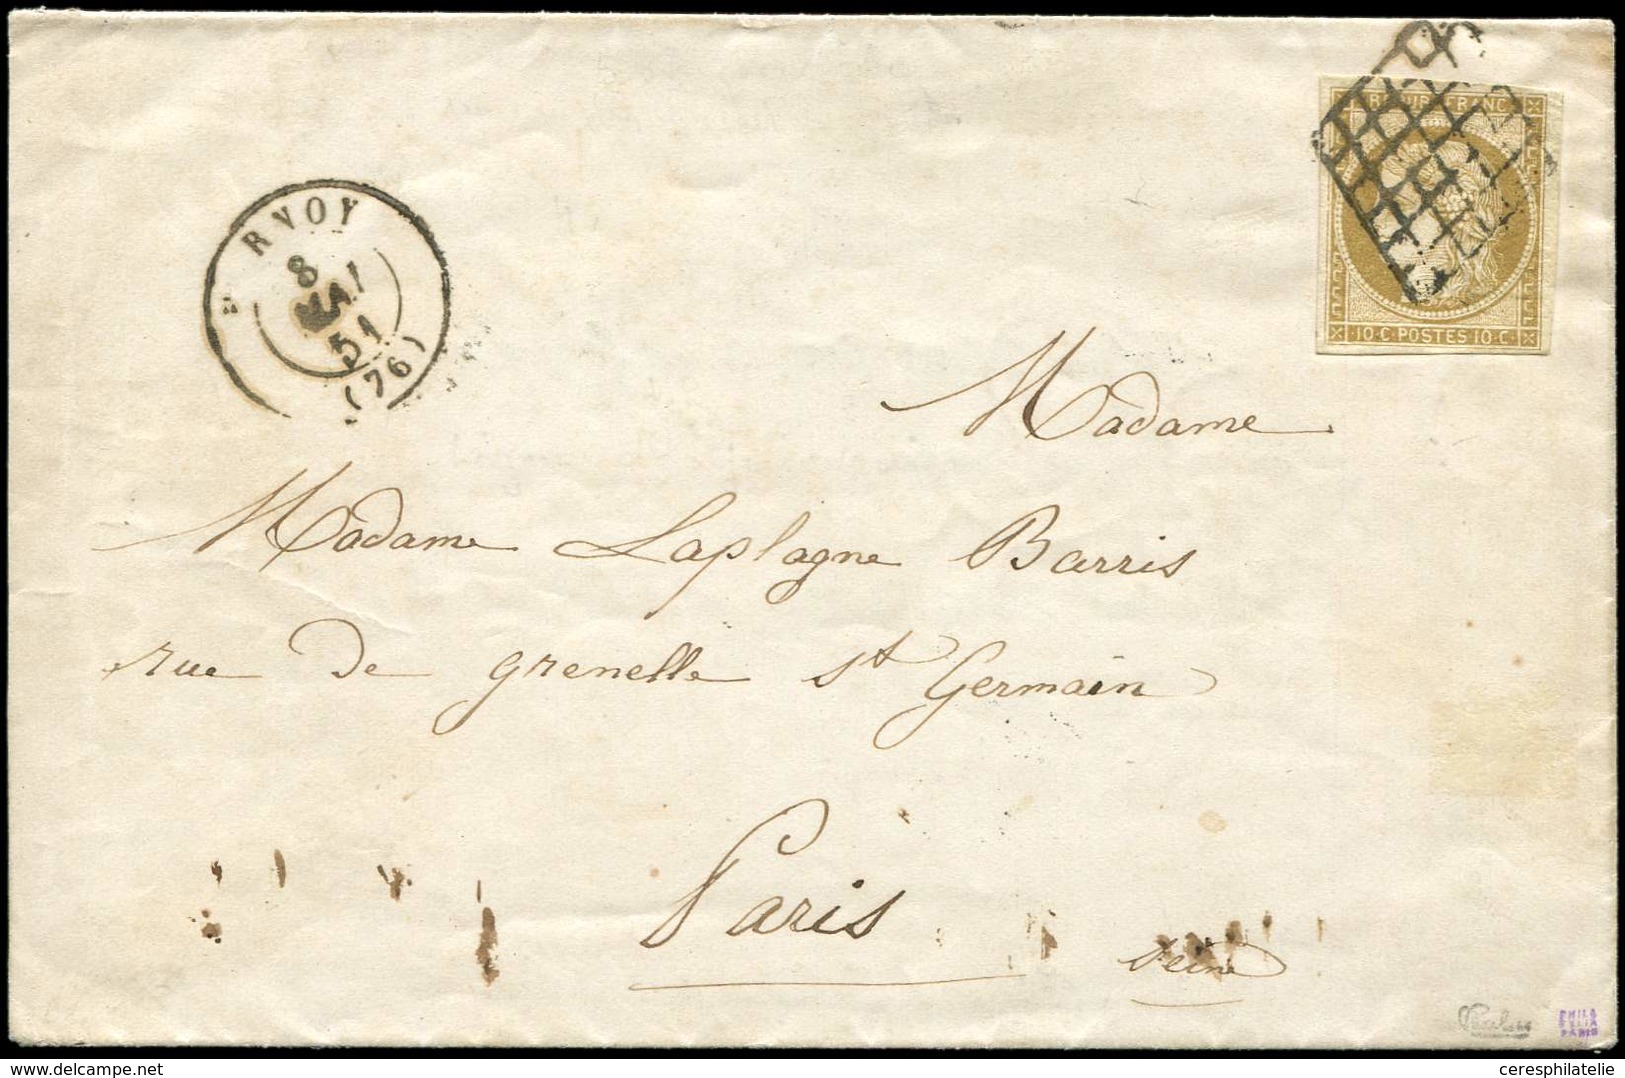 REPUB. FRANC.
10.C.POSTES 10.C.
RVOY
8
MAI
51
(76)
Madame
Madame Laplagne Barris
rue de grenelle st Germain
Paris
Seine
PHILA
TELIA
PARIS
delcampe.net
ceresphilatelie